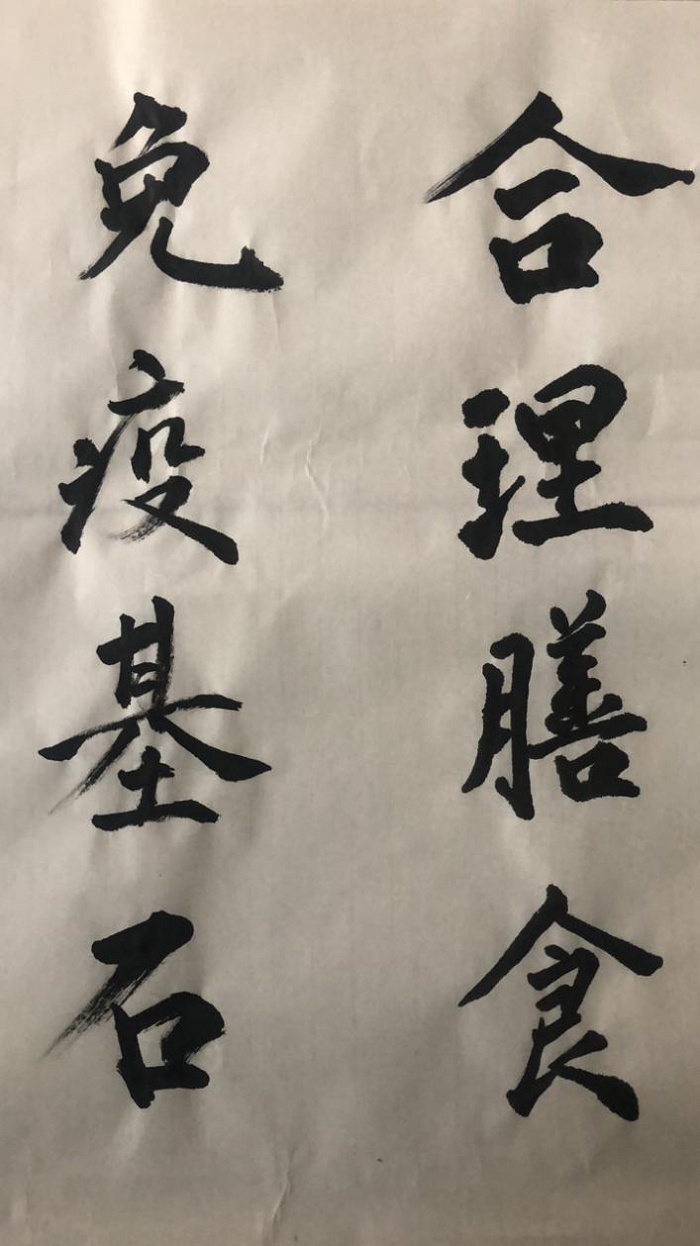 合理膳食
免疫基石